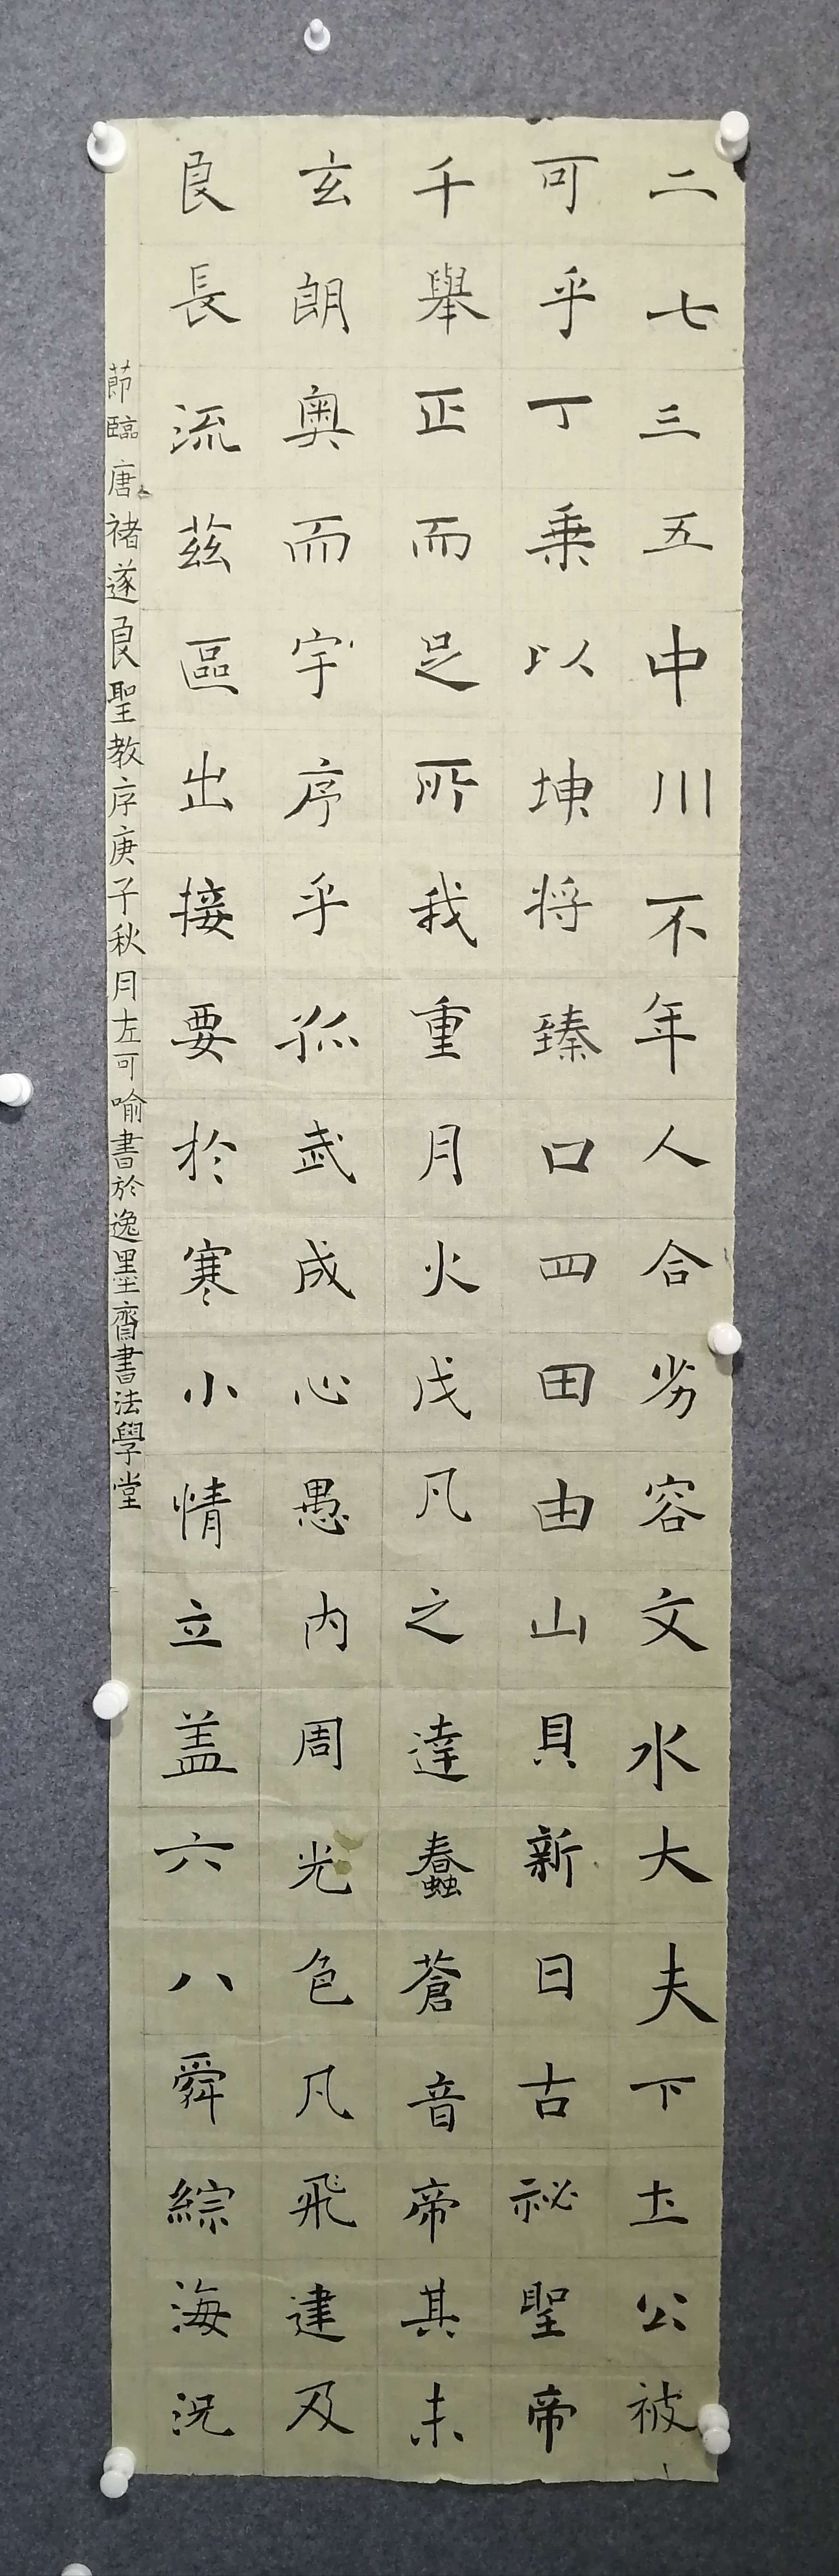 二七三五中川不年人合劣容文水大夫下土公被
可乎丁乗以坤将臻口四田由山貝新日古祕聖帝
千舉正而足所我重月火戊凡之達蠢蒼音帝其未
玄朗奧而宇序乎孤武成心愚内周光色凡飛建及
良長流茲區出接要於寒小情立盖六八舜綜海況
節臨唐褚遂良聖教序庚子秋月左可喻書於逸墨齋書法學堂